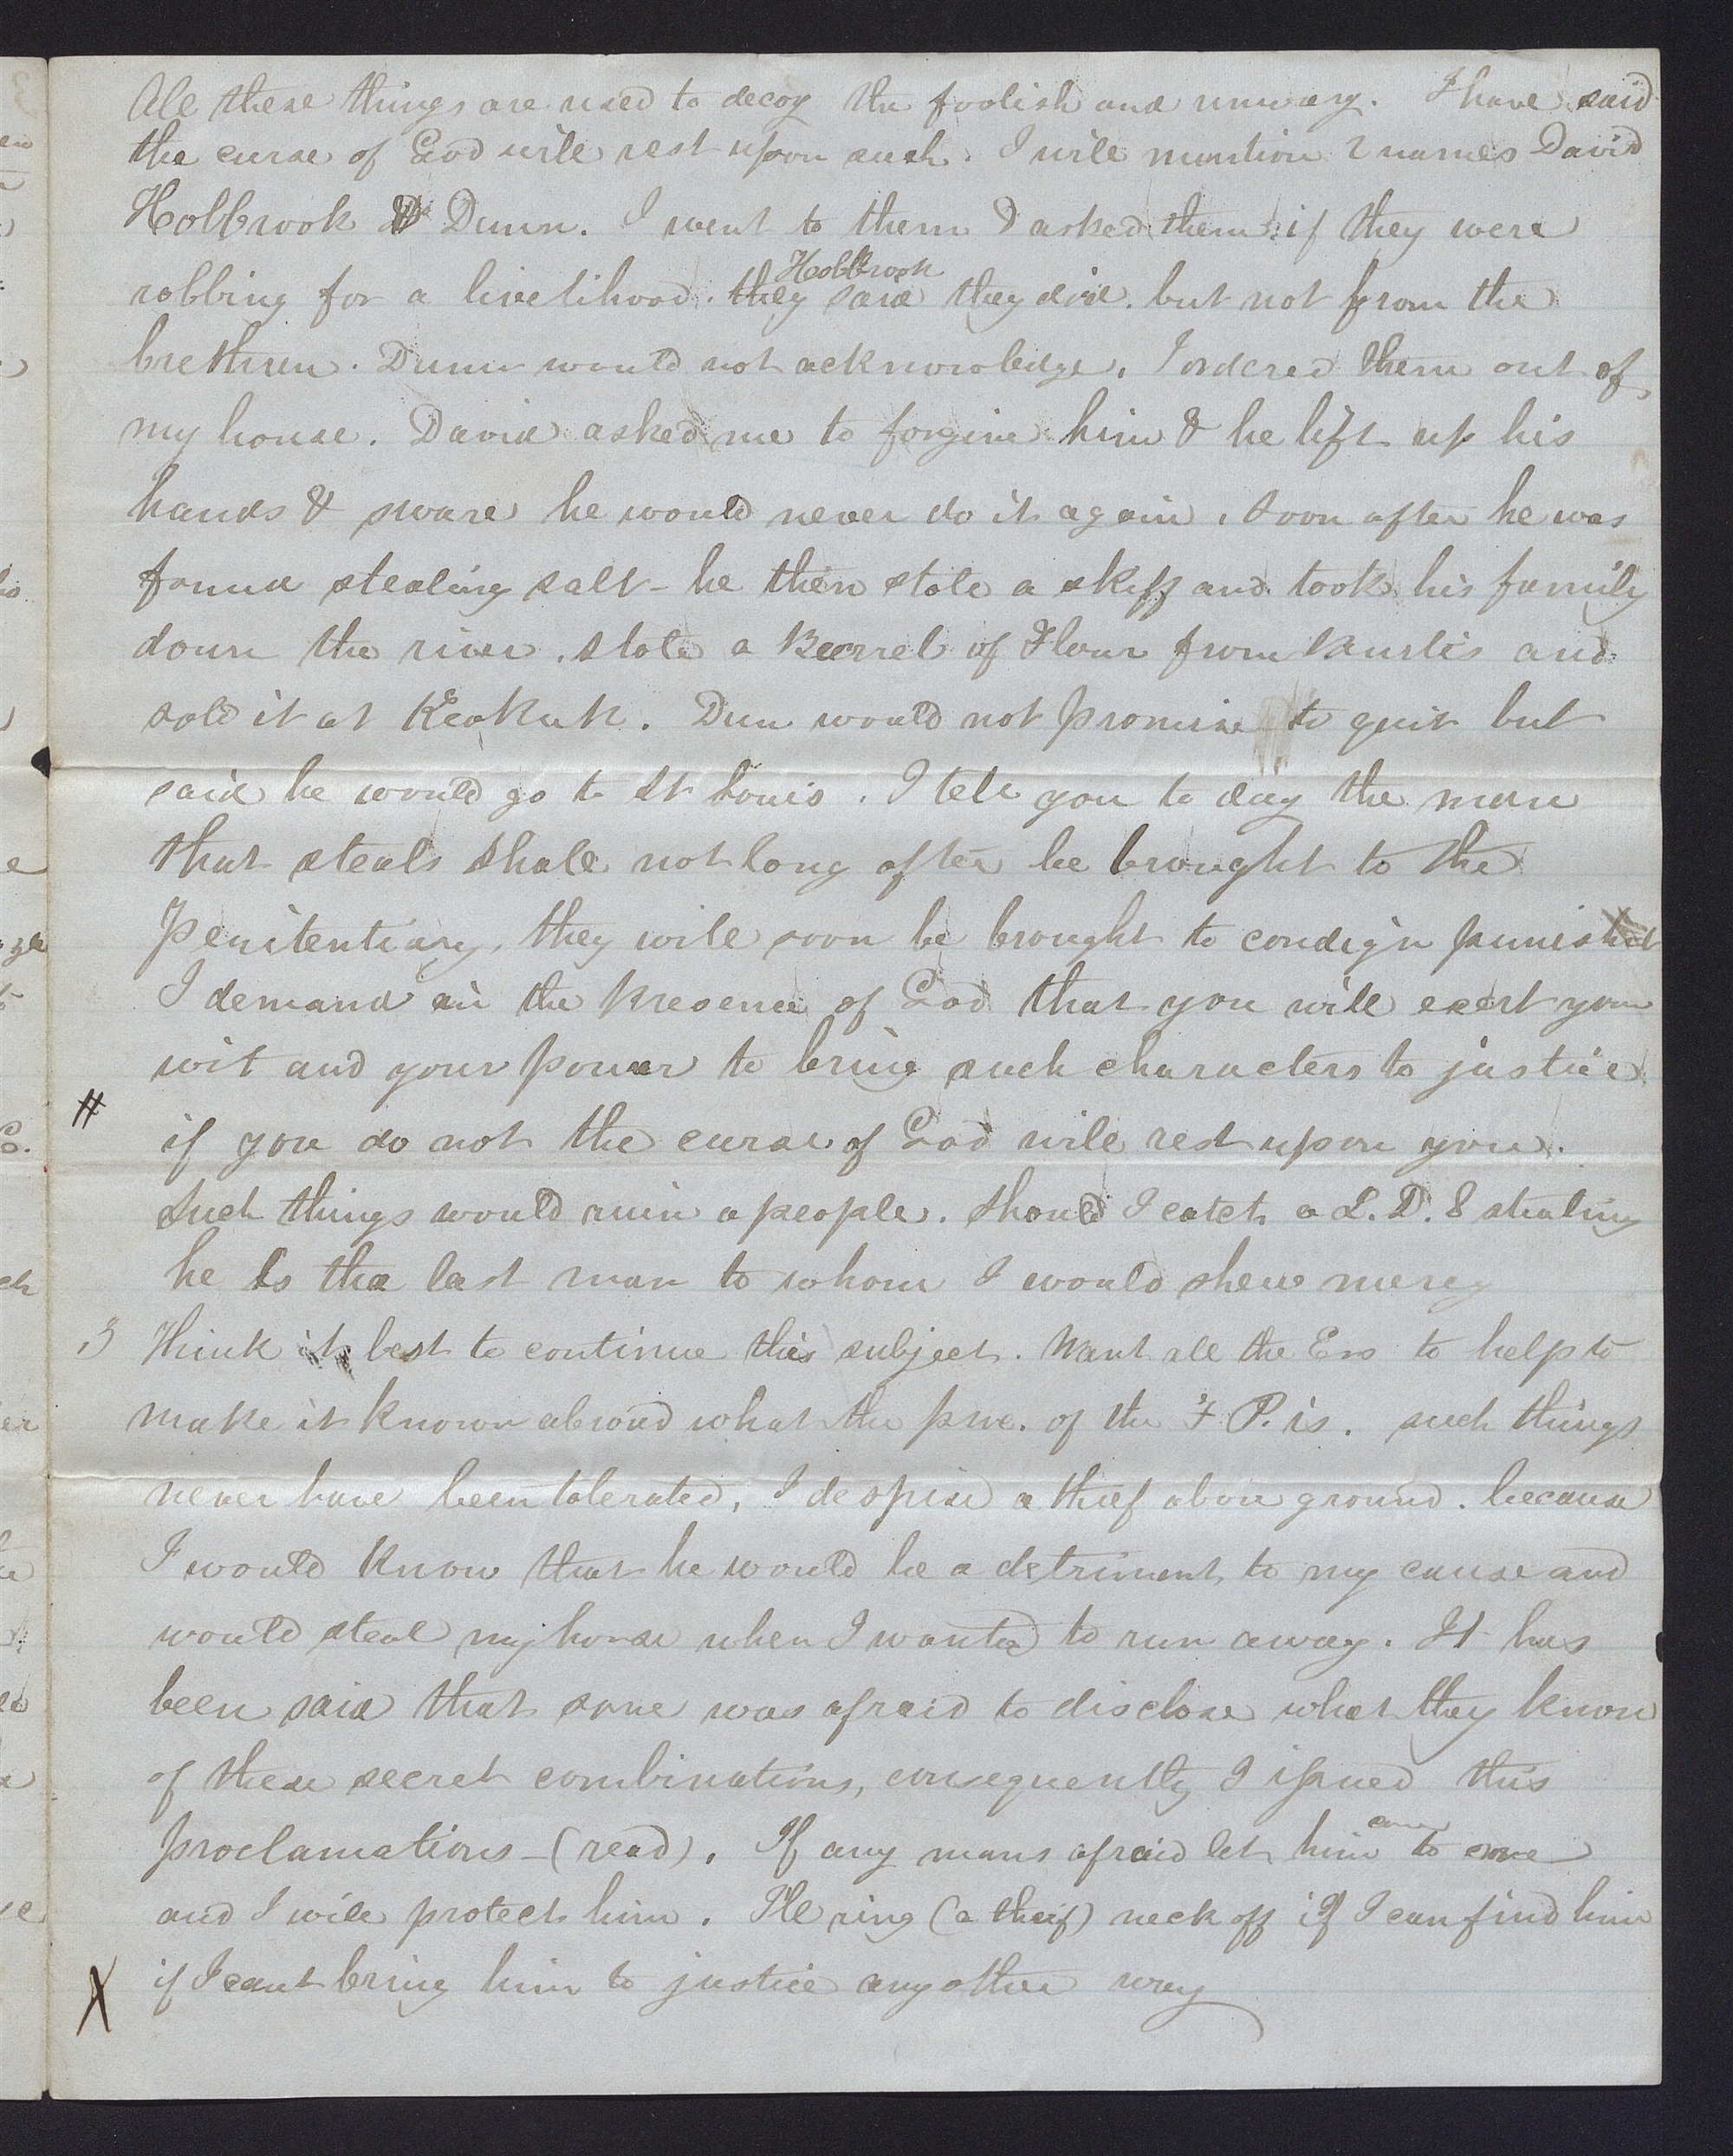 All these things are used to decoy the foolish and unwary. I have said
the curse of God will rest upon such. I will mention 2 names David
Holbrook & Dunn. I went to them & asked them if they were
Holbrook
robbing for a livelihood. they said they did. but not from the
brethren. Dunn would not acknowledge. I ordered them out of
my house. David asked me to forgive him & he lift up his
hands & sware he would never do it again. Soon after he was
found stealing salt - he then stole a skiff and took his family
down the river. stole a Barrel of Flour from Kurtis and
sold it at Keokuk. Dun would not promise to quit but
said he would go to St Louis. I tell you to day the man
that steals shall not long after be brought to the
Penitentiary, they will soon be brought to condign punish
I demand in the presence of God that you will exert your
wit and your power to bring such characters to justice
#
if you do not the curse of God will rest upon you.
Such things would ruin a people. Should I catch a L. D. S stealing
he is the last man to whom I would shew mercy
3 Think it best to continue this subject. Want all the Ers to help to
make it known abroad what the pre. of the F P. is. such things
never have been tolerated, I despise a thief above ground. because
I would know that he would be a detriment to my cause and
would steal my horse when I wanted to run away. It has
been said that some was afraid to disclose what they know
of these secret combinations, consequently I issued this
come
proclamations - (read). If any mans afraid let him to me
and I will protect him. I'll ring (a theif) neck off if I can find him
X if I cant bring him to justice any other way